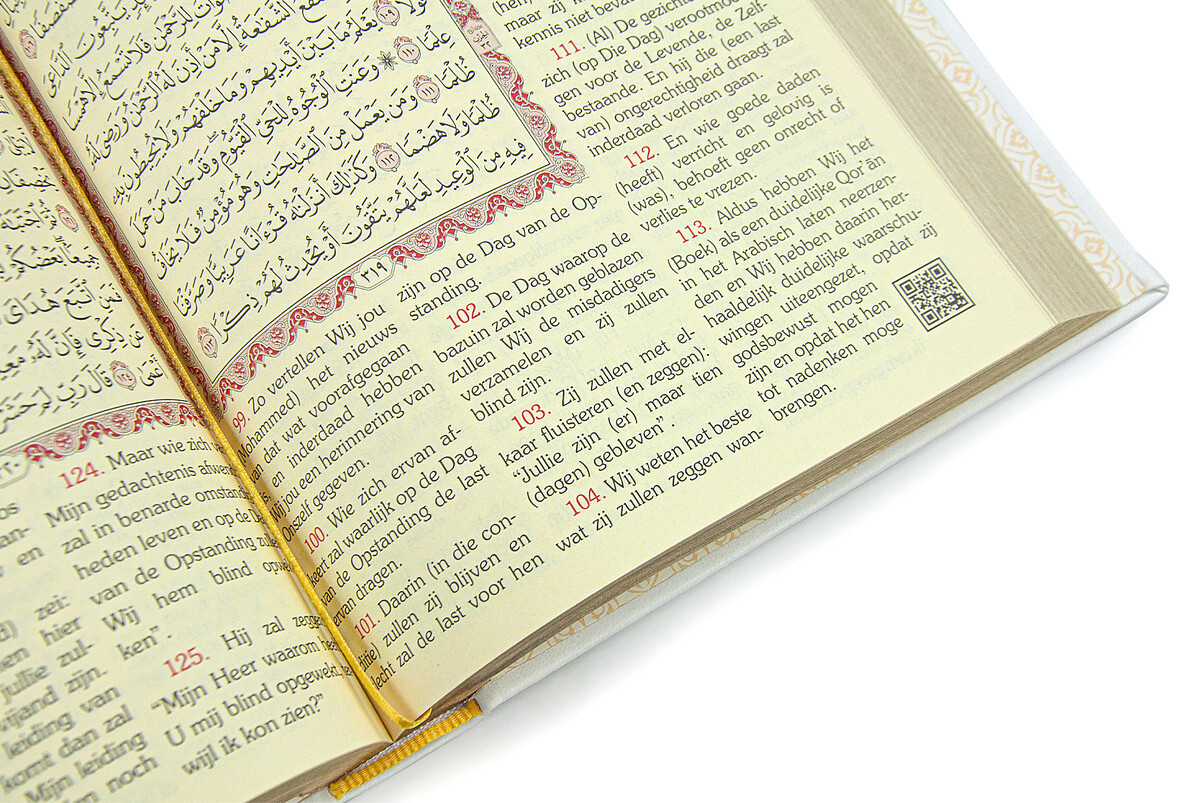 يَعْلَمُ مَا بَيْنَ أَيْدِيهِمْ وَمَا خَلْفَهُمْ وَلَا يُحِيطُونَ بِهِۦ
عِلْمًا ١١٠ ۞ وَعَنَتِ ٱلْوُجُوهُ لِلْحَىِّ ٱلْقَيُّومِ وَقَدْ خَابَ مَنْ حَمَلَ
ظُلْمًا ١١١ وَمَن يَعْمَلْ مِنَ ٱلصَّٰلِحَٰتِ وَهُوَ مُؤْمِنٌ فَلَا يَخَافُ
ظُلْمًا وَلَا هَضْمًا ١١٢ وَكَذَٰلِكَ أَنزَلْنَٰهُ قُرْءَانًا عَرَبِيًّا وَصَرَّفْنَا
فِيهِ مِنَ ٱلْوَعِيدِ لَعَلَّهُمْ يَتَّقُونَ أَوْ يُحْدِثُ لَهُمْ ذِكْرًا ١١٣
٣١٩
99. Zo vertellen Wij jou
Mohammed) het nieuws
van dat wat voorafgegaan
is, en inderdaad hebben
Wij jou een herinnering van
Onszelf gegeven.
100. Wie zich ervan af-
keert zal waarlijk op de Dag
van de Opstanding de last
ervan dragen.
101. Daarin (in die con-
ditie) zullen zij blijven en
slecht zal de last voor hen
zijn op de Dag van de Op-
standing.
102. De Dag waarop de
bazuin zal worden geblazen
zullen Wij de misdadigers
verzamelen en zij zullen
blind zijn.
103. Zij zullen met el-
kaar fluisteren (en zeggen):
“Jullie zijn (er) maar tien
(dagen) gebleven”.
104. Wij weten het beste
wat zij zullen zeggen wan-
maar zij
kennis niet
111. (Al) De gezichten
zich (op Die Dag) verootmoe-
gen voor de Levende, de Zelf-
bestaande. En hij die (een last
van) ongerechtigheid draagt zal
inderdaad verloren gaan.
112. En wie goede daden
(heeft) verricht en gelovig is
(was), behoeft geen onrecht of
verlies te vrezen.
113. Aldus hebben Wij het
(Boek) als een duidelijke Qor’ān
in het Arabisch laten neerzen-
den en Wij hebben daarin her-
haaldelijk duidelijke waarschu-
wingen uiteengezet, opdat zij
godsbewust mogen
zijn en opdat het hen
tot nadenken moge
brengen.
en
zei:
hier
jullie zul-
zijn.
leiding van
komt dan zal
Mijn leiding
noch
124. Maar wie zich
Mijn gedachtenis
zal in benarde omstan
heden leven en op de
van de Opstanding
Wij hem blind
ken”.
125. Hij zal
“Mijn Heer waarom
U mij blind opgewekt,
wijl ik kon zien?”